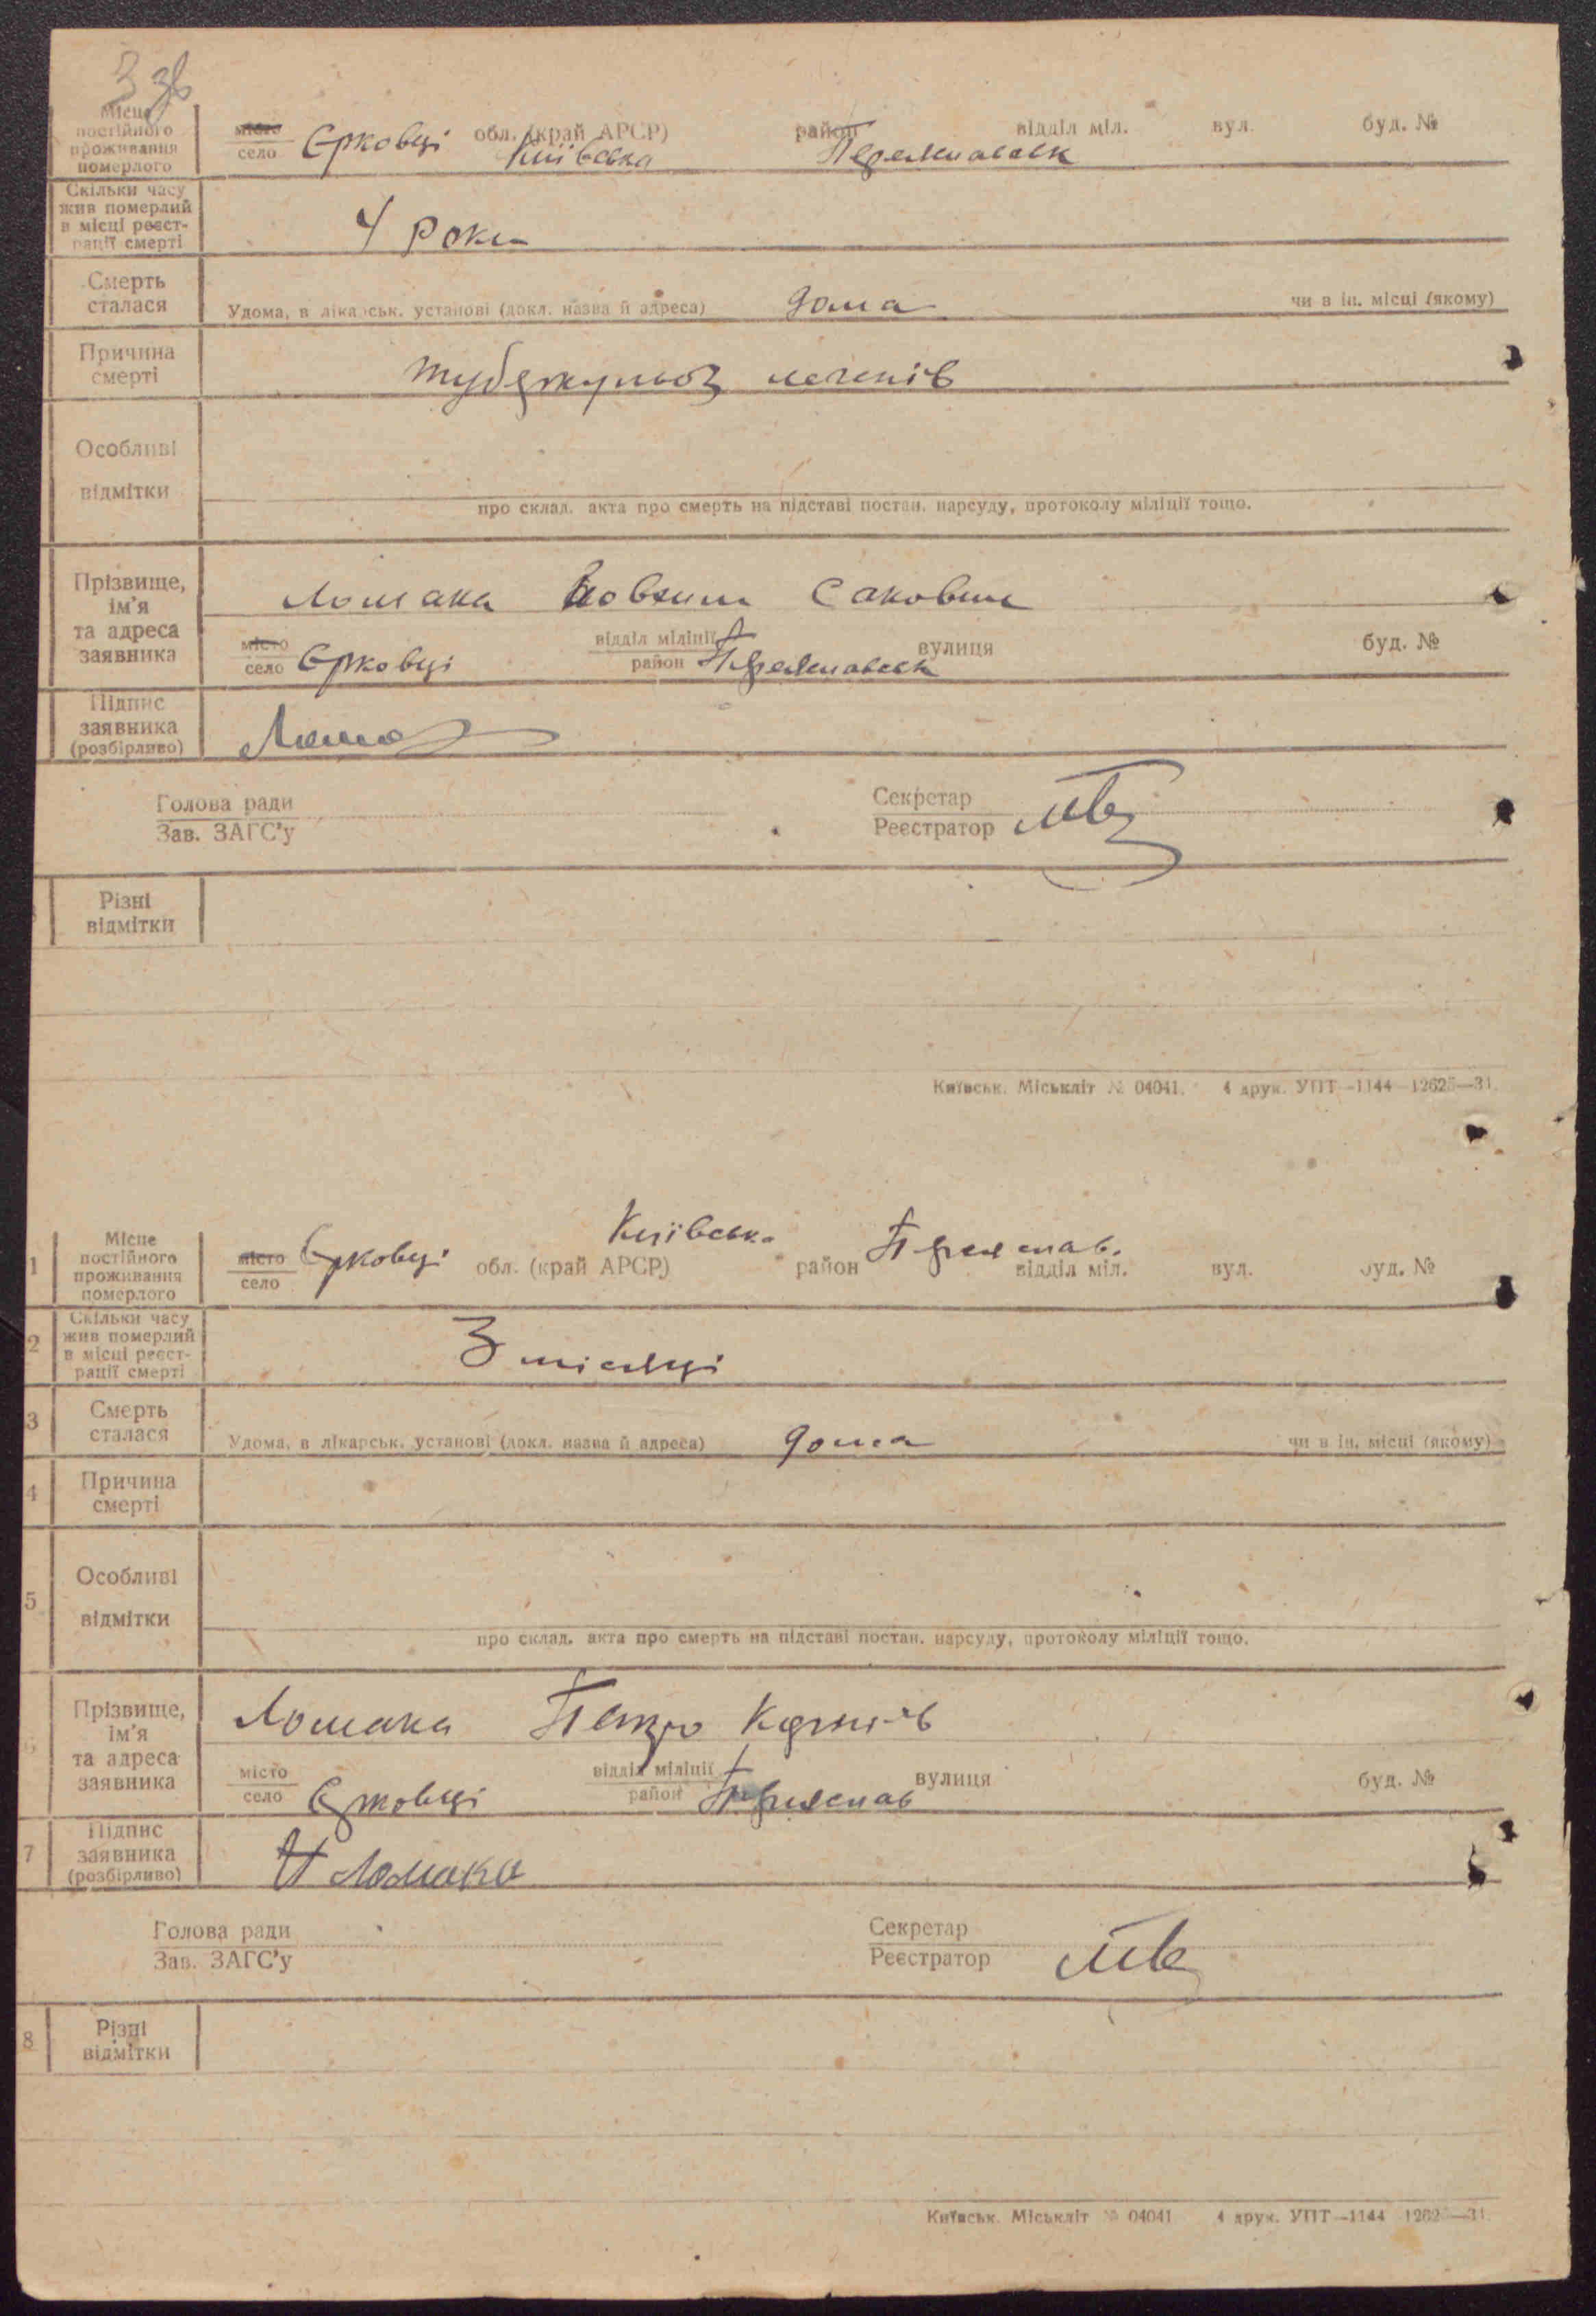 3 зв
Місце постійного проживання померлого
місто село Єрковці обл. (край АРСР) Київська район Переяславськ відділ міл. вул. буд. №
Скільки часу жив померлий в місці реєстрації смерті
4 роки
Смерть сталася
Удома, в лікарськ. установі (докл. назва й адреса) дома чи в ін. місці (якому)
Причина смерті
туберкульоз легенів
Особливі відмітки
про склад. акта про смерть на підставі постан. нарсуду, протоколу міліції тощо.
Прізвище, ім'я та адреса заявника
Ломака Савович
місто село Єрковці відділ міліції район Переяславськ вулиця буд. №
Підпис заявника (розбірливо)
Голова ради Секретар
Зав. ЗАГС'у Реєстратор
Різні відмітки
Київськ. Міськліт № 04041. 4 друк. УПТ—1144 12625—31.
1 Місце постійного проживання померлого
місто село Єрковці обл. (край АРСР) Київська район Переяслав. відділ міл. вул. буд. №
2 Скільки часу жив померлий в місці реєстрації смерті
3 місяці
3 Смерть сталася
Удома, в лікарськ. установі (докл. назва й адреса) дома чи в ін. місці (якому)
4 Причина смерті
5 Особливі відмітки
про склад. акта про смерть на підставі постан. нарсуду, протоколу міліції тощо.
6 Прізвище, ім'я та адреса заявника
Ломака Петро
місто село Єрковці відділ міліції район Переяслав вулиця буд. №
7 Підпис заявника (розбірливо)
П Ломака
Голова ради Секретар
Зав. ЗАГС'у Реєстратор
8 Різні відмітки
Київськ. Міськліт № 04041 4 друк. УПТ—1144 12625—31.